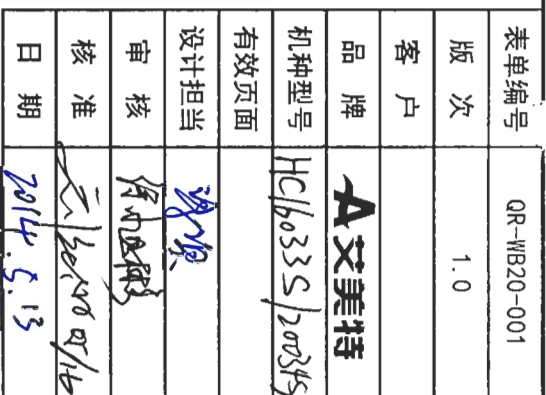 表单编号 QR-WB20-001
版次 1.0
客户
品牌 艾美特
机种型号 HC16033S/20034S
有效页面
设计担当
审核
核准
日期 2014.5.13